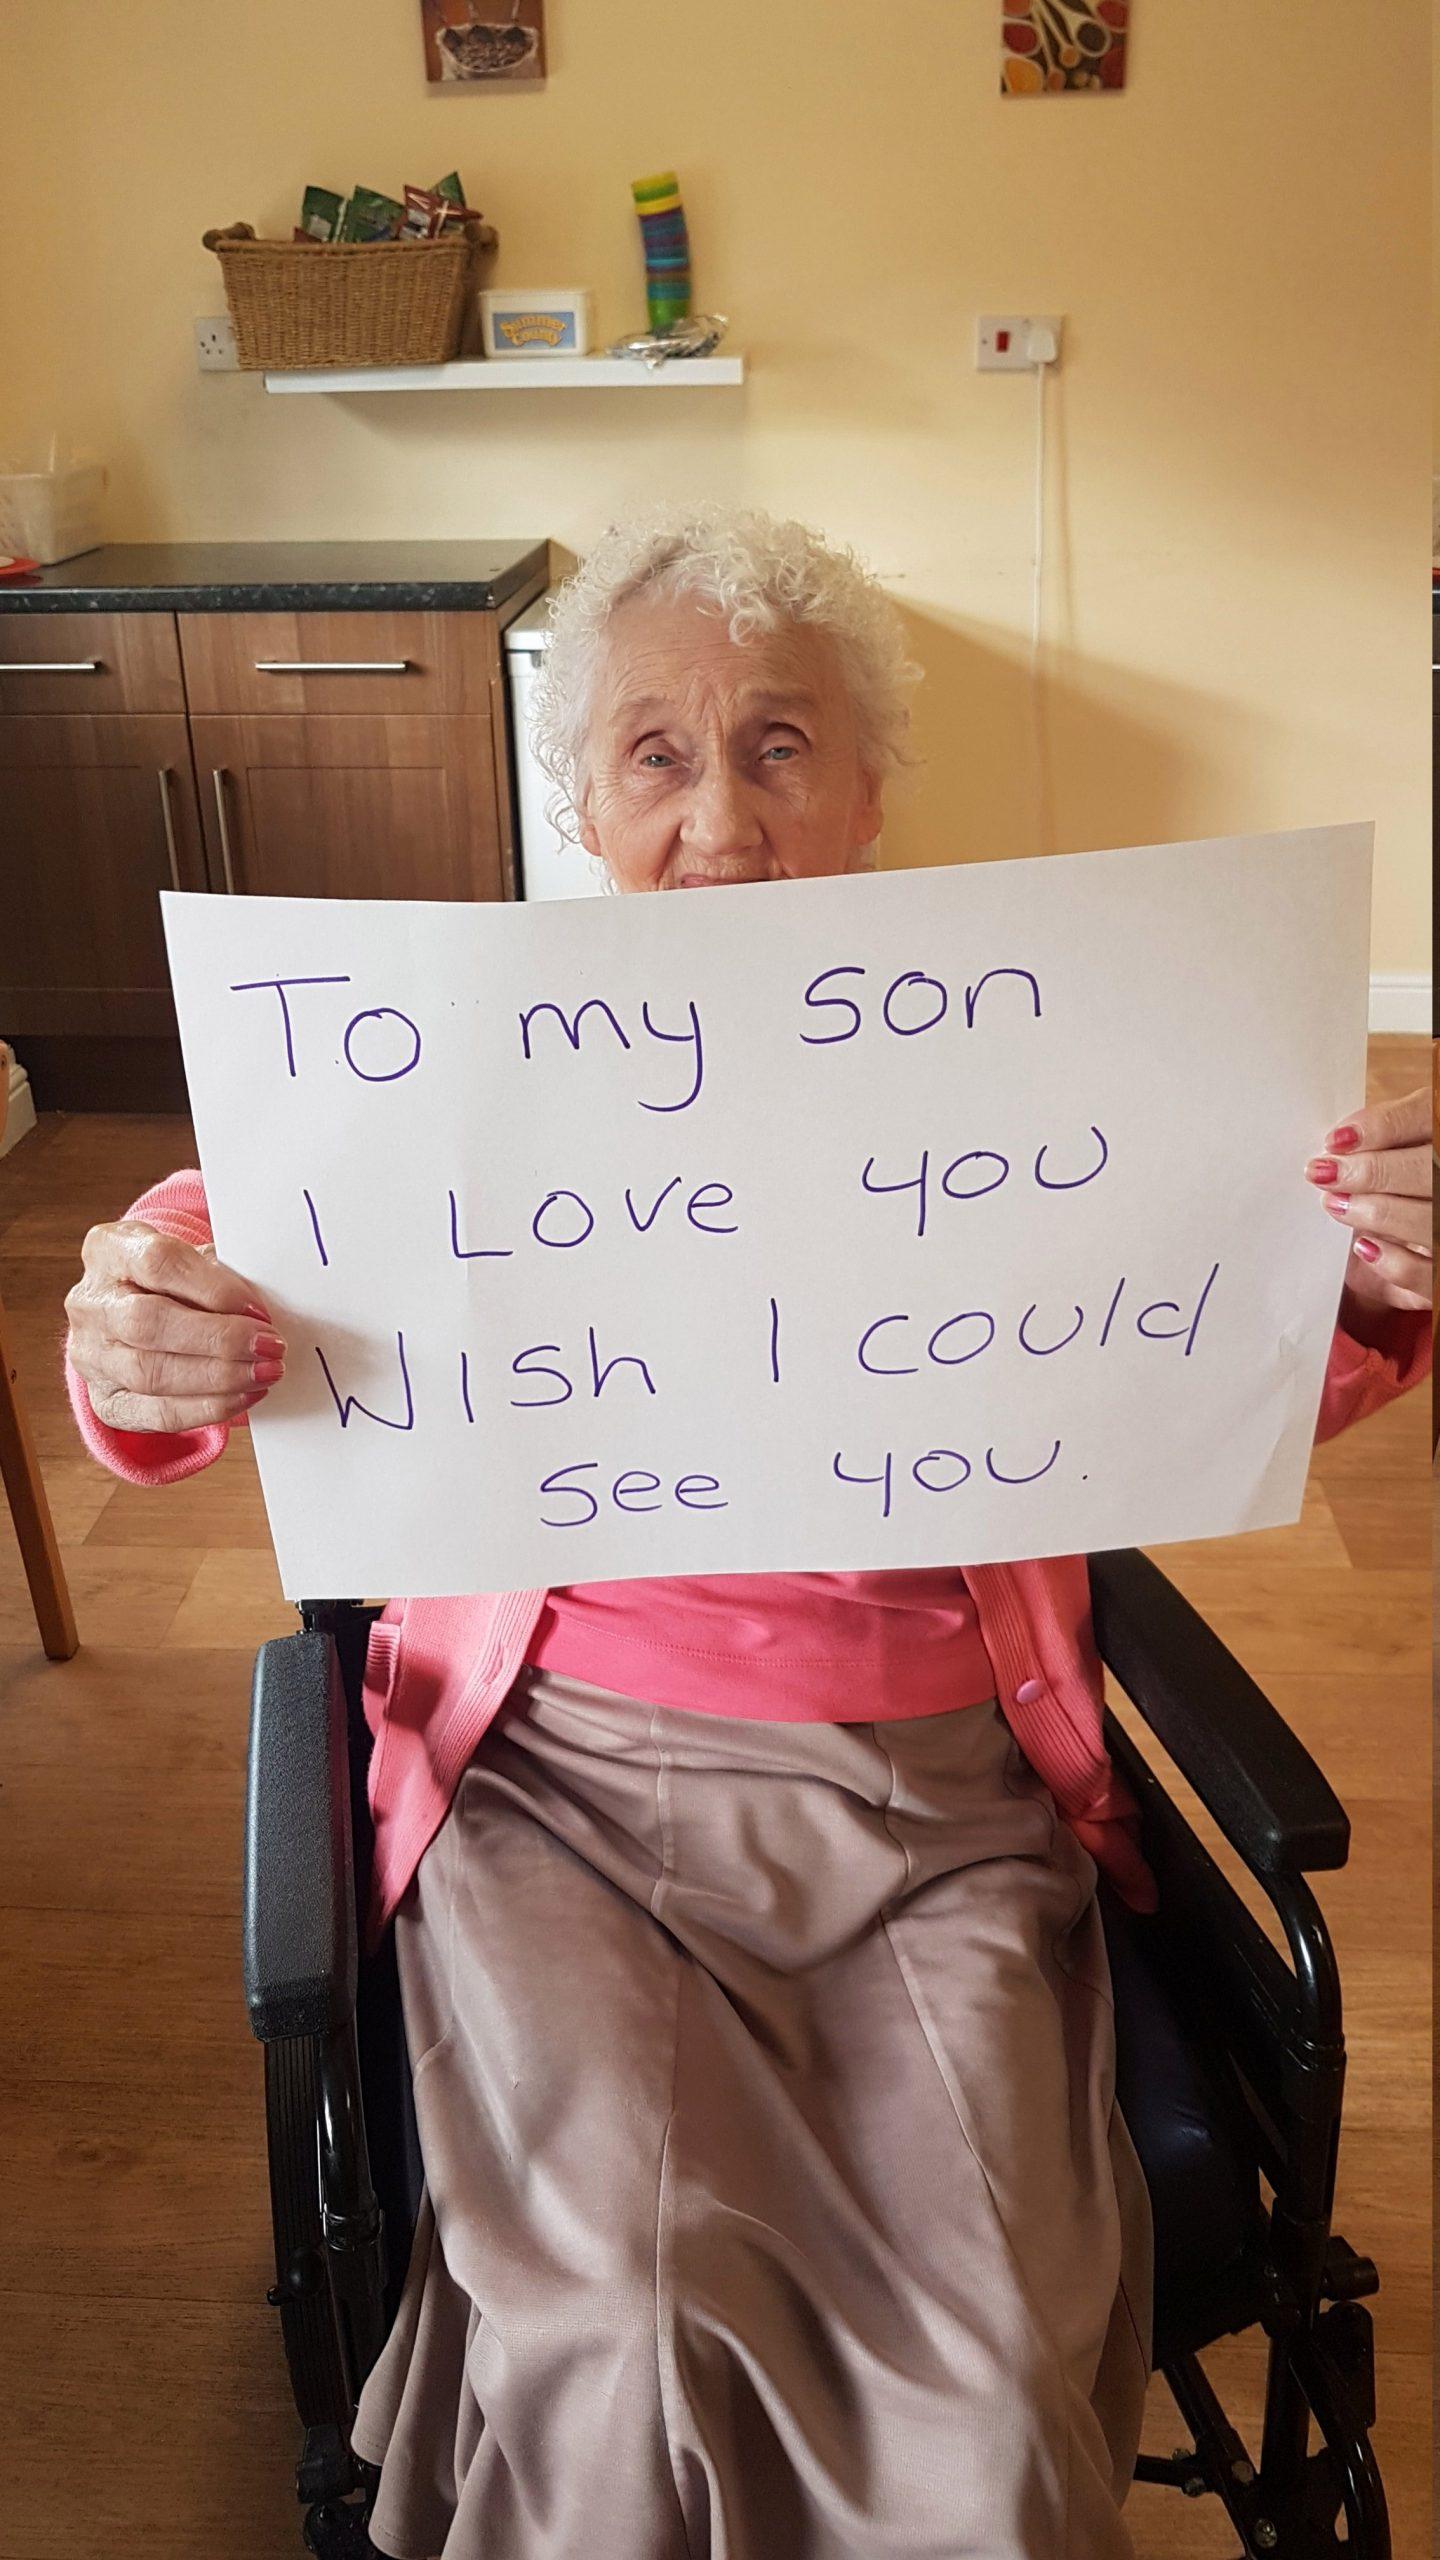 Summer
County
To my son
I Love you
Wish I could
see you.